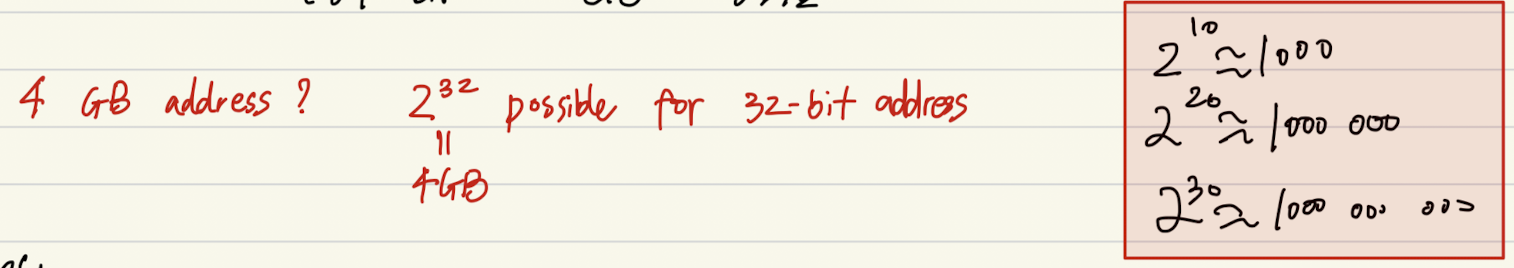 4 GB address ? 2³² possible for 32-bit address
||
4GB
2¹⁰ ≈ 1000
2²⁰ ≈ 1000 000
2³⁰ ≈ 1000 000 000